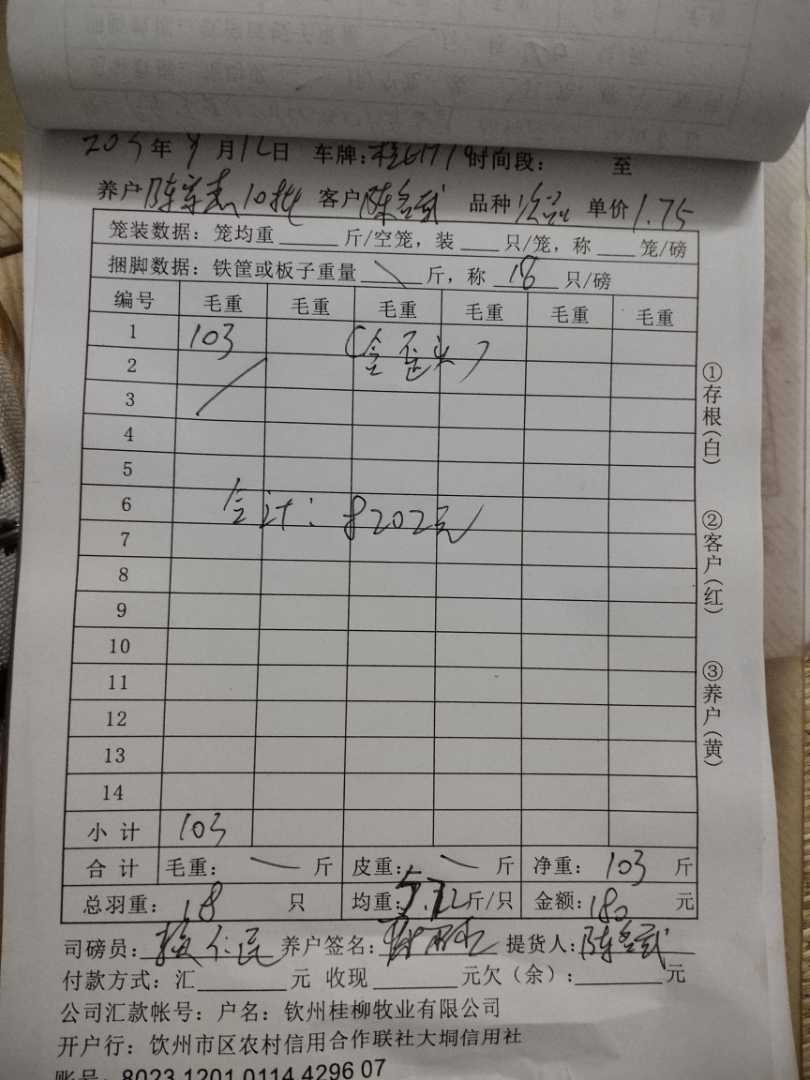 年 月12日 车牌: 时间段: 至
养户陈 10批 客户陈 武 品种 单价1.75
笼装数据: 笼均重 斤/空笼, 装 只/笼, 称 笼/磅
捆脚数据: 铁筐或板子重量 \ 斤, 称 18 只/磅
编号 毛重 毛重 毛重 毛重 毛重 毛重
1 103 (含歪头)
2
3
4
5
6 合计: 8202元
7
8
9
10
11
12
13
14
小计 103
合计 毛重: 斤 皮重: 斤 净重: 103 斤
总羽重: 18 只 均重: 5.72斤/只 金额: 180 元
司磅员: 仁民 养户签名: 提货人: 陈 武
付款方式: 汇 元 收现 元欠(余): 元
公司汇款帐号: 户名: 钦州桂柳牧业有限公司
开户行: 饮州市区农村信用合作联社大垌信用社
账号: 8023 1201 0114 4296 07
①存根(白)
②客户(红)
③养户(黄)